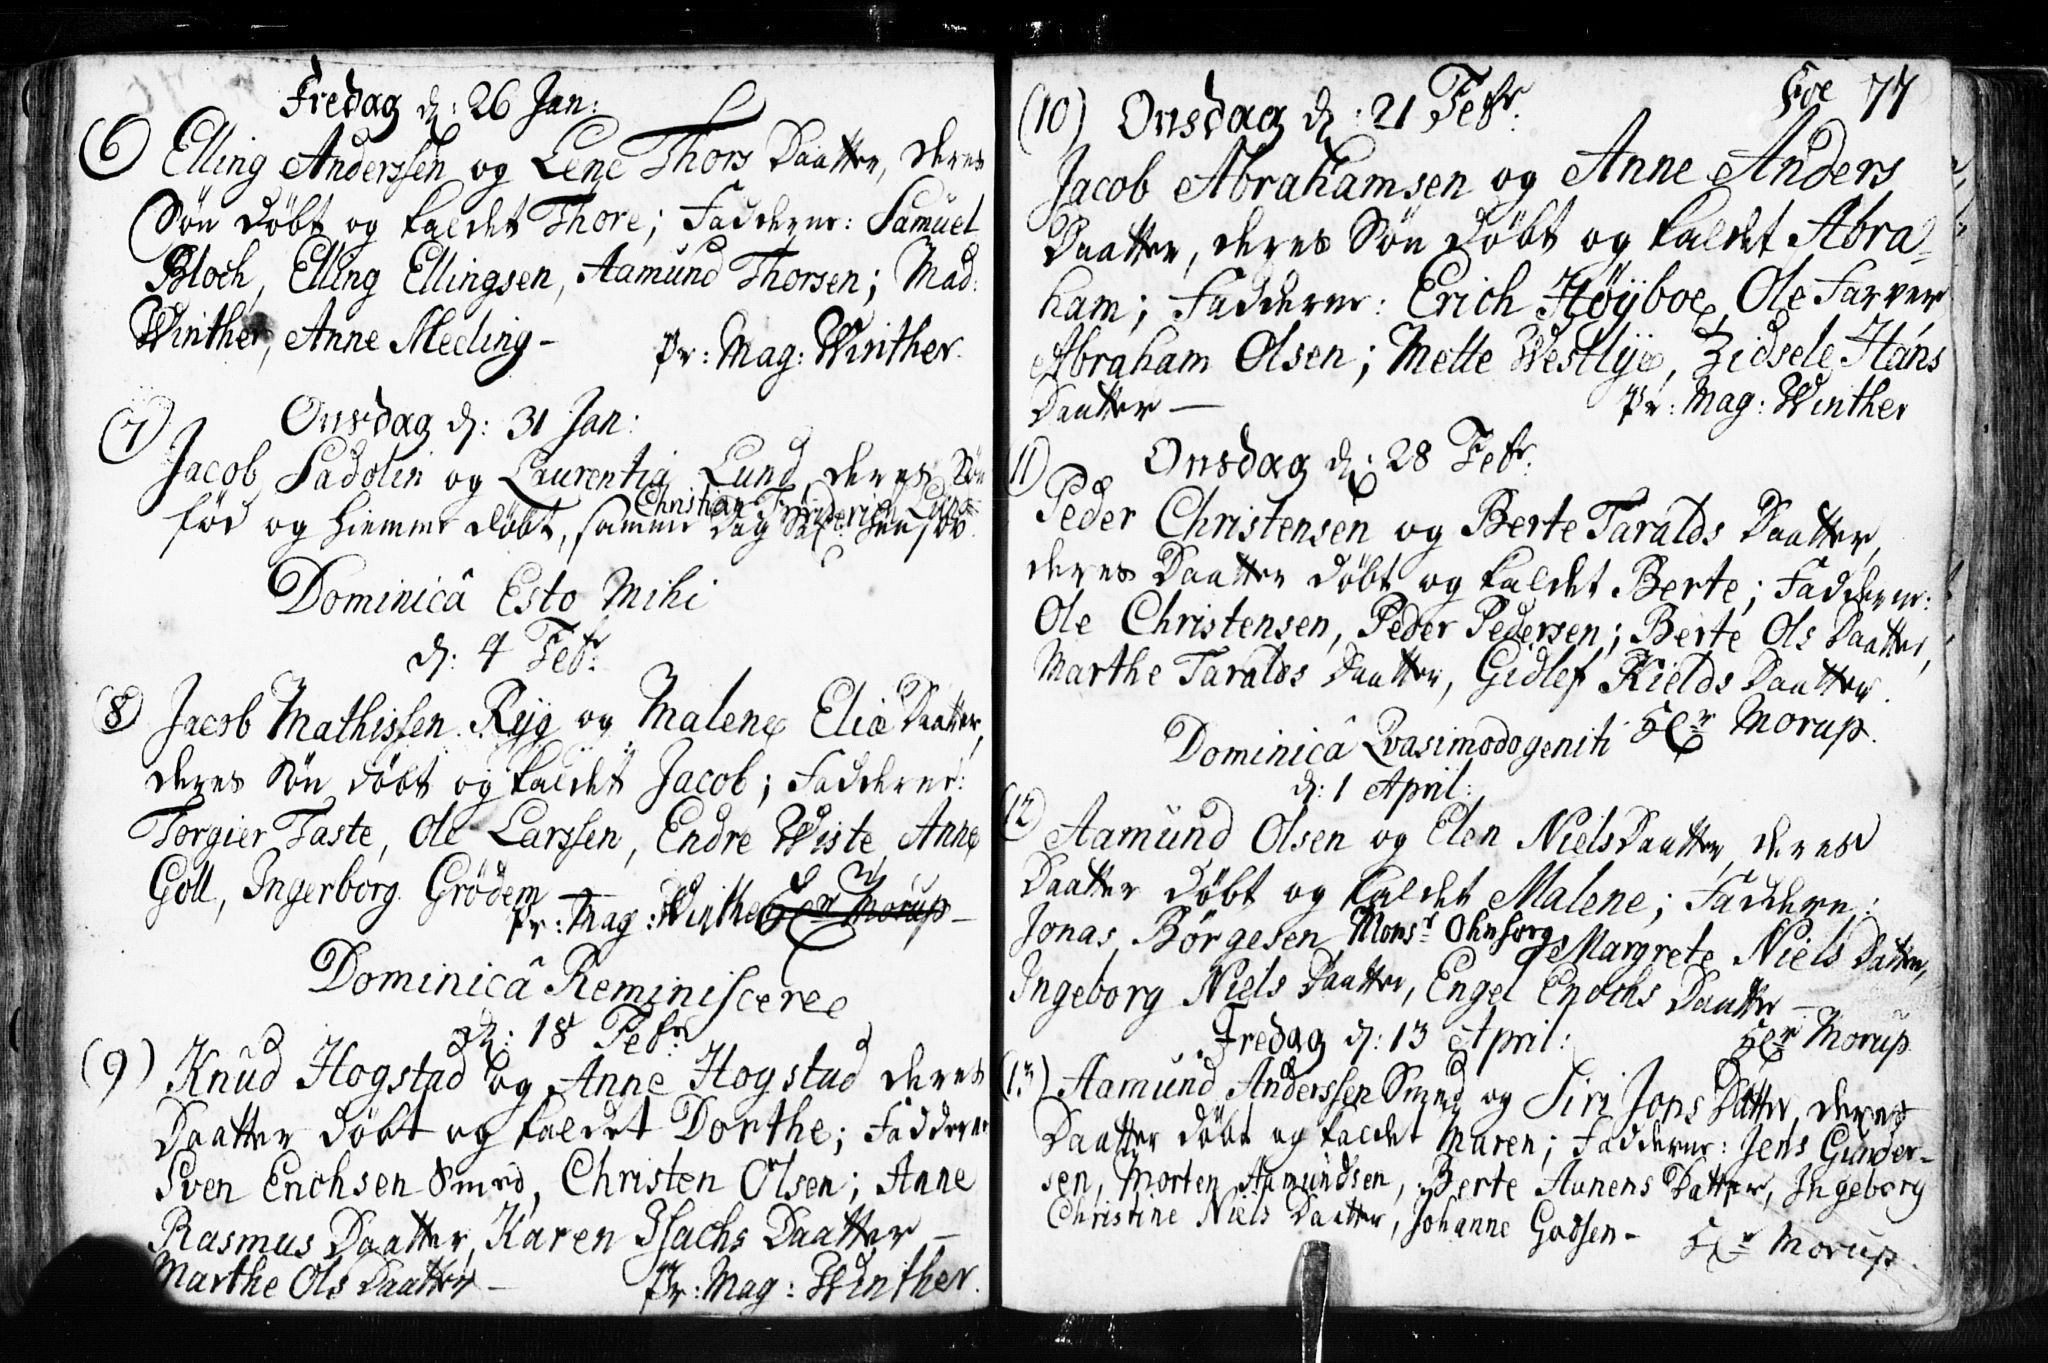 Fredag d: 26 Jan:
(6) Elling Anderssen og Lene Thors Daatter, deres
Søn døbt og kaldet Thore; Fadderne: Samuel
Bloch, Elling Ellingsen, Aamund Thorsen; Mad:
Winther, Anne Meeling –
Pr: Mag: Winther.
(7) Onsdag d: 31 Jan:
Jacob Sadolin og Laurentia Lund, deres Søn
Christian Friderich Lund
fød og hiemme døbt, samme Dag
Dominicâ Esto Mihi
d: 4 Febr:
(8) Jacob Mathissen Ryg og Malene Eliæ Daatter,
deres Søn døbt og kaldet Jacob; Fadderne:
Torgier Taste, Ole Larssen, Endre Wiste, Anne
Goll, Ingerborg Grödem –
Pr: Mag: Winther Hr Morup –
Dominicâ Reminiscere
d: 18 Febr:
(9) Knud Hogstad og Anne Hogstad deres
Daatter døbt og kaldet Dorthe; Fadderne
Sven Erichsen Smed, Christen Olsen; Anne
Rasmus Daatter, Karen Isachs Daatter –
Marthe Ols Daatter –
Pr: Mag: Winther.
77
(10) Onsdag d: 21 Febr:
Jacob Abrahamsen og Anne Anders
Daatter, deres Søn døbt og kaldet Abra-
ham; Fadderne: Erich Høyboe, Ole Farver
Abraham Olsen; Mette Westlye, Zidsele Hans
Daatter –
Pr: Mag: Winther
11) Onsdag d: 28 Febr:
Peder Christensen og Berte Taralds Daatter,
deres Daatter døbt og kaldet Berte; Fadderne:
Ole Christensen, Peder Pedersen; Berte Ols Daatter,
Marthe Taralds Daatter, Gidlef Kields Daatter.
Hr Morup.
Dominicâ Qvasimodogeniti
d: 1 April:
12) Aamund Olsen og Elen Niels Daatter, deres
Daatter døbt og kaldet Malene; Fadderne:
Jonas Börgesen, Monsr Ohnsorg, Margrete Niels Datter,
Ingeborg Niels Daatter, Engel Enochs Daatter –
Hr Morup.
Fredag d: 13 April:
(13) Aamund Anderssen Smed og Siri Jons Datter, deres
Daatter døbt og kaldet Maren; Fadderne: Jens Gunder-
sen, Morten Aamundsen, Berte Aanens Datter, Ingeborg
Christine Niels Daatter, Johanne Godsen –
Hr Morup.